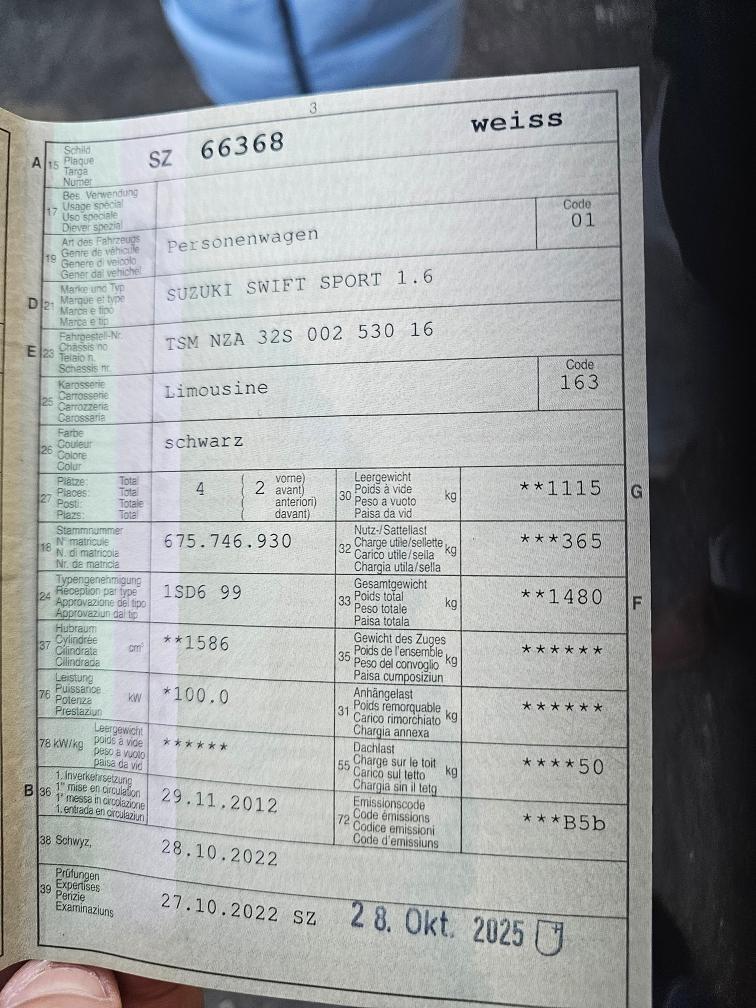 3
A 15 Schild
Plaque
Targa
Numer
SZ 66368 weiss
17 Bes. Verwendung
Usage spécial
Uso speciale
Diever spezial
19 Art des Fahrzeugs
Genre de véhicule
Genere di veicolo
Gener dal vehichel
Personenwagen
Code
01
D 21 Marke und Typ
Marque et type
Marca e tipo
Marca e tip
SUZUKI SWIFT SPORT 1.6
E 23 Fahrgestell-Nr.
Châssis no
Telaio n.
Schassis nr.
TSM NZA 32S 002 530 16
25 Karosserie
Carrosserie
Carrozzeria
Carossaria
Limousine
Code
163
26 Farbe
Couleur
Colore
Colur
schwarz
27 Plätze: Total
Places: Total
Posti: Totale
Plazs: Total
4 ( 2 vorne)
avant)
anteriori)
davant)
30 Leergewicht
Poids à vide
Peso a vuoto
Paisa da vid
kg
**1115 G
18 Stammnummer
N° matricule
N. di matricola
Nr. da matricla
675.746.930
32 Nutz-/Sattellast
Charge utile/sellette
Carico utile/sella
Chargia utila/sella
kg
***365
24 Typengenehmigung
Réception par type
Approvazione del tipo
Approvaziun dal tip
1SD6 99
33 Gesamtgewicht
Poids total
Peso totale
Paisa totala
kg
**1480 F
37 Hubraum
Cylindrée
Cilindrata
Cilindrada
cm³
**1586
35 Gewicht des Zuges
Poids de l'ensemble
Peso del convoglio
Paisa cumposiziun
kg
******
76 Leistung
Puissance
Potenza
Prestaziun
kW
*100.0
31 Anhängelast
Poids remorquable
Carico rimorchiato
Chargia annexa
kg
******
78 kW/kg Leergewicht
poids à vide
peso a vuoto
paisa da vid
******
55 Dachlast
Charge sur le toit
Carico sul tetto
Chargia sin il tetg
kg
****50
B 36 1. Inverkehrsetzung
1re mise en circulation
1a messa in circolazione
1. entrada en circulaziun
29.11.2012
72 Emissionscode
Code émissions
Codice emissioni
Code d'emissiuns
***B5b
38 Schwyz, 28.10.2022
39 Prüfungen
Expertises
Perizie
Examinaziuns
27.10.2022 SZ 28. Okt. 2025